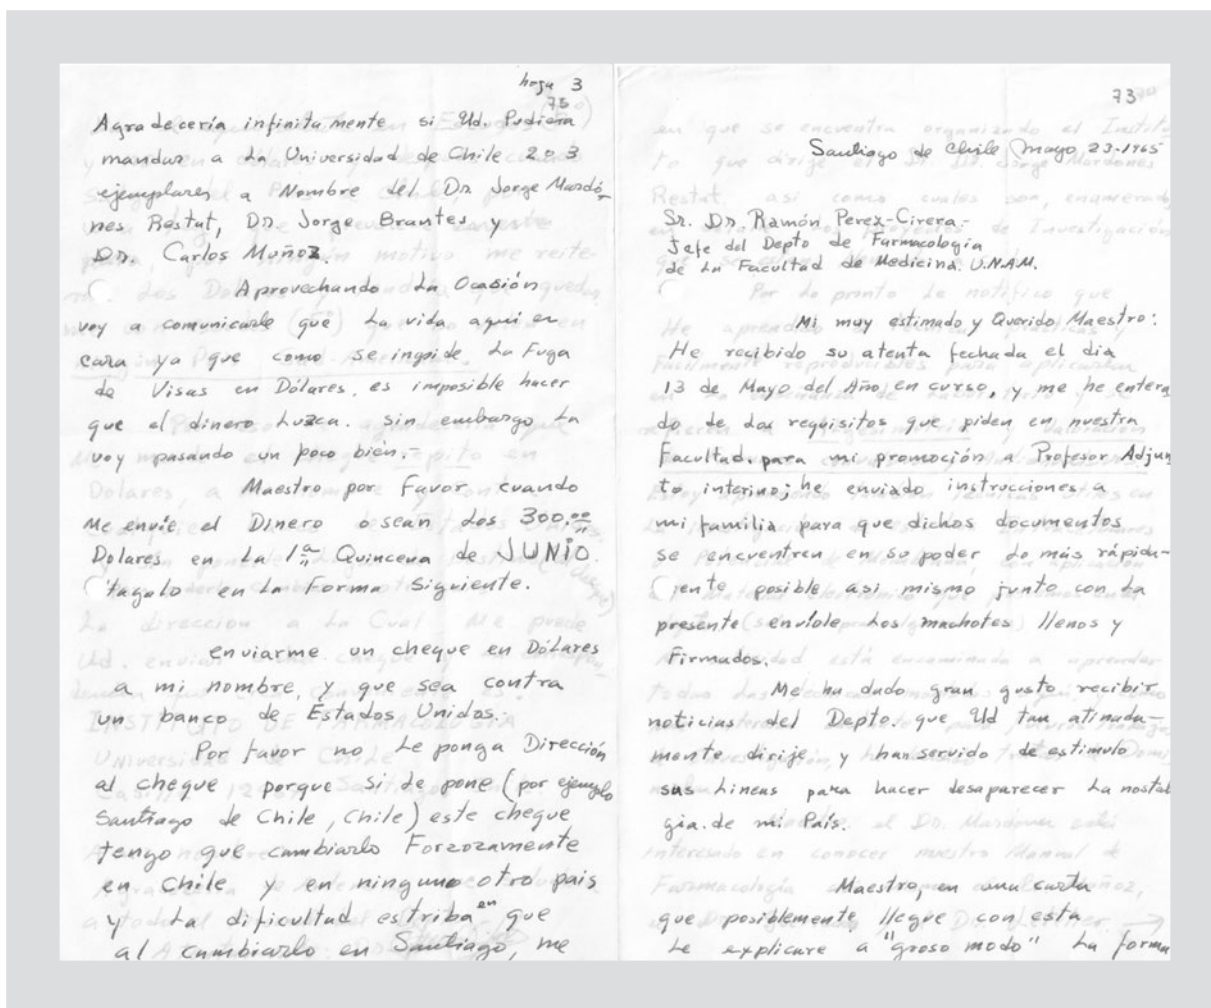 hoja 3
75
Agradecería infinitamente si Ud. Pudiera
mandar a La Universidad de Chile 2 o 3
ejemplares a Nombre del Dr. Jorge Mardó-
nes Restut, Dr. Jorge Brantes y
Dr. Carlos Muñoz.
Aprovechando La Ocasión
voy a comunicarle que La vida aqui es
cara ya que como se ingpide La Fuga
de Visas en Dólares, es imposible hacer
que el dinero Luzca. sin embargo La
voy pasando un poco bién.-
Maestro por Favor cuando
Me envíe el Dinero o sean Los 300.00
Dolares en La 1a Quincena de JUNIO.
tagalo en La Forma Siguiente.
enviarme un cheque en Dólares
a mi nombre, y que sea contra
un banco de Estados Unidos.-
Por favor no Le ponga Dirección
al cheque porque si Le pone (por ejemplo
Santiago de Chile, Chile) este cheque
tengo que cambiarlo Forzozamente
en Chile y en ninguno otro pais
y La dificultad estriba en que
al cambiarlo en Santiago, me
73
Santiago de Chile Mayo 23-1965
Sr. Dr. Ramón Perez-Cirera.-
Jefe del Depto de Farmacologia
de La Facultad de Medicina. U.N.A.M.
Mi muy estimado y Querido Maestro:
He recibido su atenta fechada el dia
13 de Mayo del Año en curso, y me he entera
do de Los requisitos que piden en nuestra
Facultad. para mi promoción a Profesor Adjun
to interino; he enviado instrucciones a
mi familia para que dichos documentos
se encuentren en su poder Lo más rápida-
jente posible asi mismo junto con La
presente envíole Los machotes llenos y
Firmados.
Me ha dado gran gusto recibir
noticias del Depto. que Ud tan atinada-
mente dirije, y han servido de estimulo
sus Lineas para hacer desaparecer La nostal
gia. de mi País.
Maestro, en una carta
que posiblemente llegue con esta
Le explicare a "groso modo" La forma